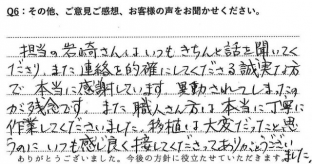 Q6：その他、ご意見ご感想、お客様の声をお聞かせください。
担当の岩崎さんはいつもきちんと話を聞いてく
ださり、また連絡を的確にしてくださる誠実な方
で本当に感謝しています。異動されてしまったの
が残念です。また職人さん方は本当に丁寧に
作業してくださいました。移植は大変だったと思
うのにいつも感じ良く接してくださってありがとうござい
ました。
ありがとうございました。今後の方針に役立たせていただきます。